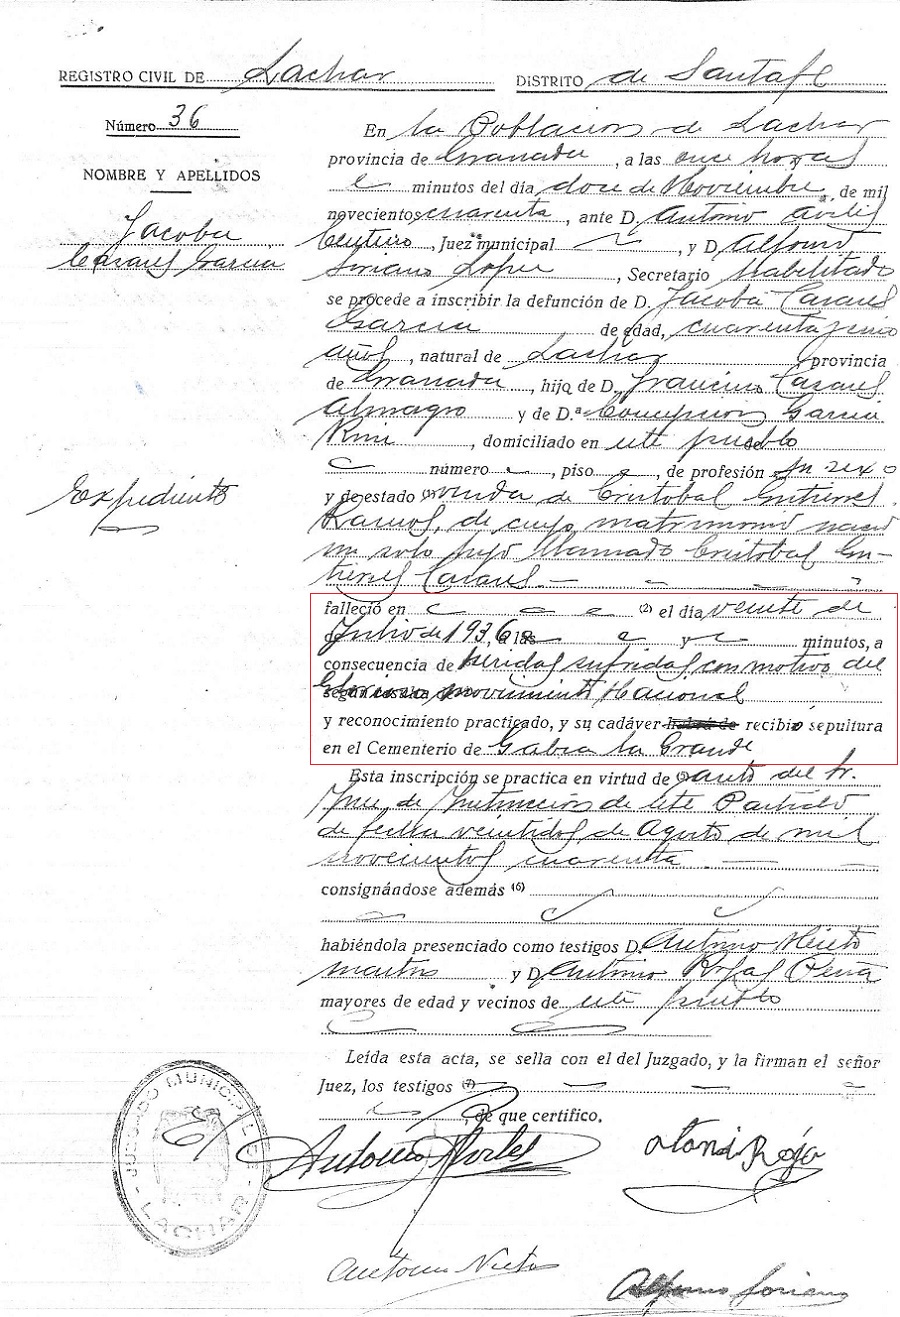 REGISTRO CIVIL DE Lachar DISTRITO de Santafe
Número 36
NOMBRE Y APELLIDOS
Jacoba
Casares Garcia
Expediente
En la Poblacion de Lachar
provincia de Granada, a las once horas
minutos del día doce de Noviembre, de mil
novecientos cuarenta, ante D. Antonio Aviles
Centeno, Juez municipal, y D. Alfonso
Soriano Lopez, Secretario Habilitado
se procede a inscribir la defunción de D. Jacoba Casares
Garcia de edad, cuarenta y cinco
años, natural de Lachar, provincia
de Granada, hijo de D. Francisco Casares
Almagro y de D.ª Concepcion Garcia
, domiciliado en este pueblo
número, piso, de profesión su sexo
y de estado viuda de Cristobal Gutierrez
Ramos, de cuyo matrimonio nacio
un solo hijo llamado Cristobal Gu-
tierrez Casares
falleció en (2) el día veinte de
Julio de 1936, a las y minutos, a
consecuencia de heridas sufridas con motivo del
Glorioso movimiento Nacional
y reconocimiento practicado, y su cadáver habrá de recibio sepultura
en el Cementerio de Gabia la Grande
Esta inscripción se practica en virtud de auto del Sr.
Juez de Instruccion de este Partido
de fecha veintidos de Agosto de mil
novecientos cuarenta
consignándose además (6)
habiéndola presenciado como testigos D. Antonio Nieto
Martos y D. Antonio Rojas Peña
mayores de edad y vecinos de este pueblo
Leída esta acta, se sella con el del Juzgado, y la firman el señor
Juez, los testigos (7)
, de que certifico.
JUZGADO MUNICIPAL DE
LACHAR
Antonio Aviles
Antonio Nieto
Alfonso Soriano